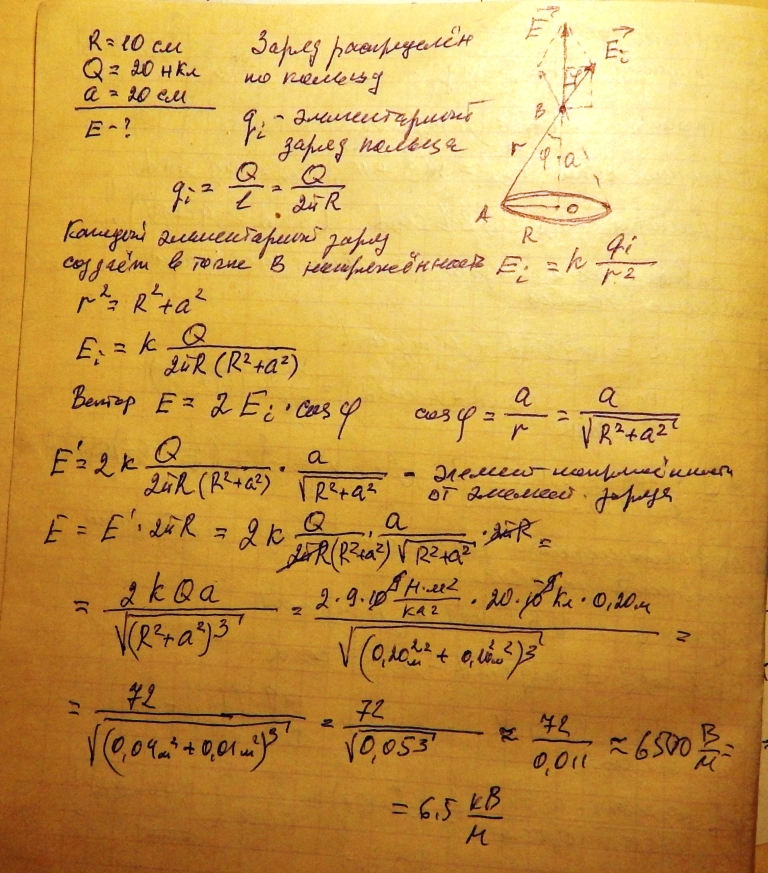 R = 10 см
Q = 20 нКл
a = 20 см
E - ?
Заряд распределён
по кольцу
qi - элементарный
заряд кольца
qi = Q/l = Q/2πR
E⃗
E⃗i
φ
B
r
φ
a
A
R
O
Каждый элементарный заряд
создаёт в точке B напряжённость Ei = k qi/r²
r² = R² + a²
Ei = k Q/2πR(R²+a²)
Вектор E = 2Ei · cos φ cos φ = a/r = a/√(R²+a²)
E' = 2k Q/2πR(R²+a²) · a/√(R²+a²) - элемент напряжённости
от элемент. заряда
E = E' · 2πR = 2k Q/2πR(R²+a²) · a/√(R²+a²) · 2πR =
= 2kQa/√(R²+a²)³ = 2·9·10⁹ Н·м²/Кл² · 20·10⁻⁹ Кл · 0,20 м/√(0,20²м² + 0,10²м²)³ =
= 72/√(0,04м² + 0,01м²)³ = 72/√0,05³ ≈ 72/0,011 ≈ 6500 В/м =
= 6,5 кВ/м